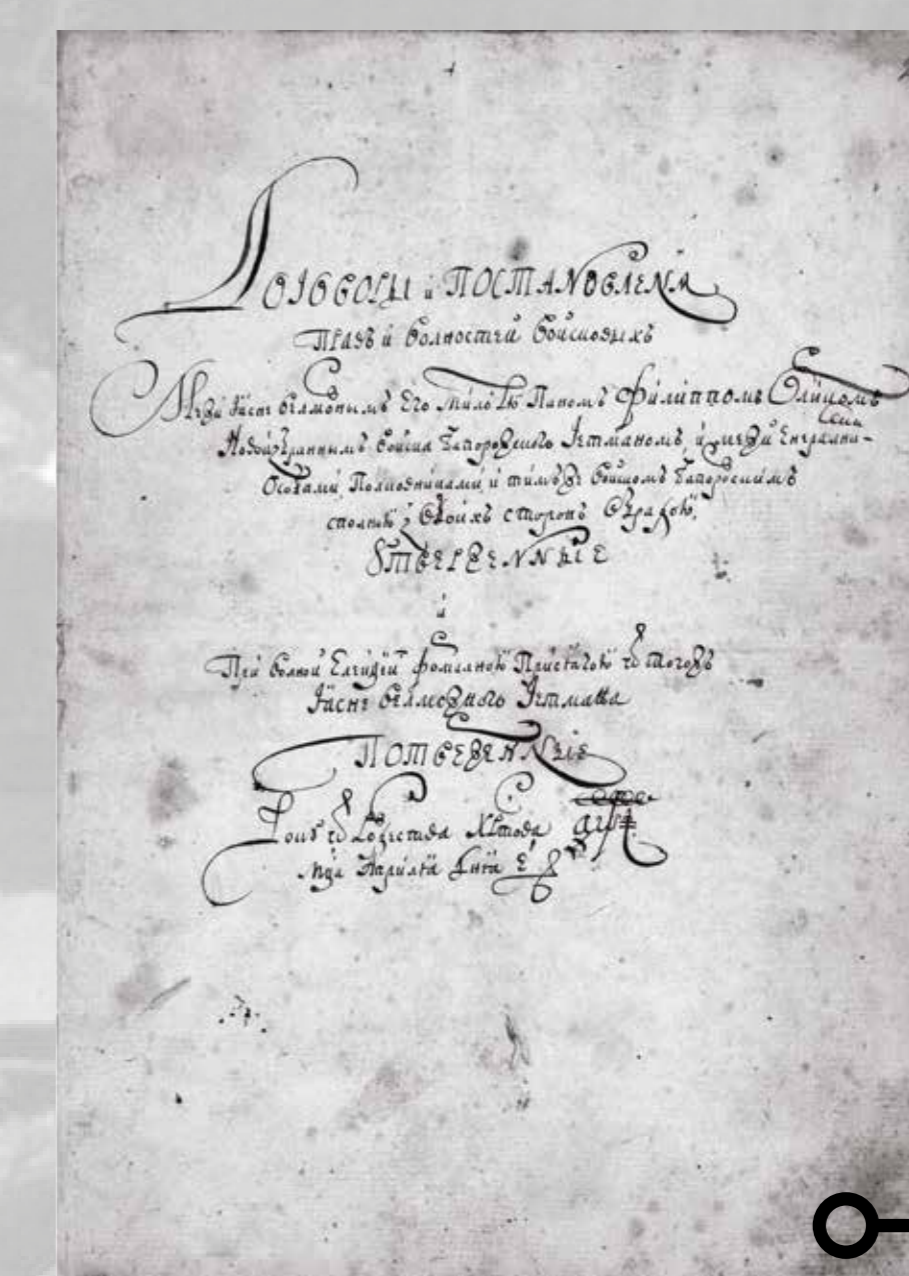 Договоры и Постановлεня
Правъ и волностεй Войсковыхъ
Мεжи Ясне вεлможнымъ Его милостю Паномъ Филиппомъ Орликомъ
Новоизбраннымъ Войска Запорожского Гεтманомъ, и мεжи Енεралними
Особами Полковниками, и тимжε Войскомъ Запорозскимъ
сполною з обоихъ сторонъ обрадою,
Утвεржεнныε
и
При волной Елεкцїи формалною Присягою ѿ тогожъ
Ясне вεлможного Гεтмана
Потвεржεнныε
Року ѿ Рожεства Христова ҂аѱі
мца Априлѧ дня ε҃